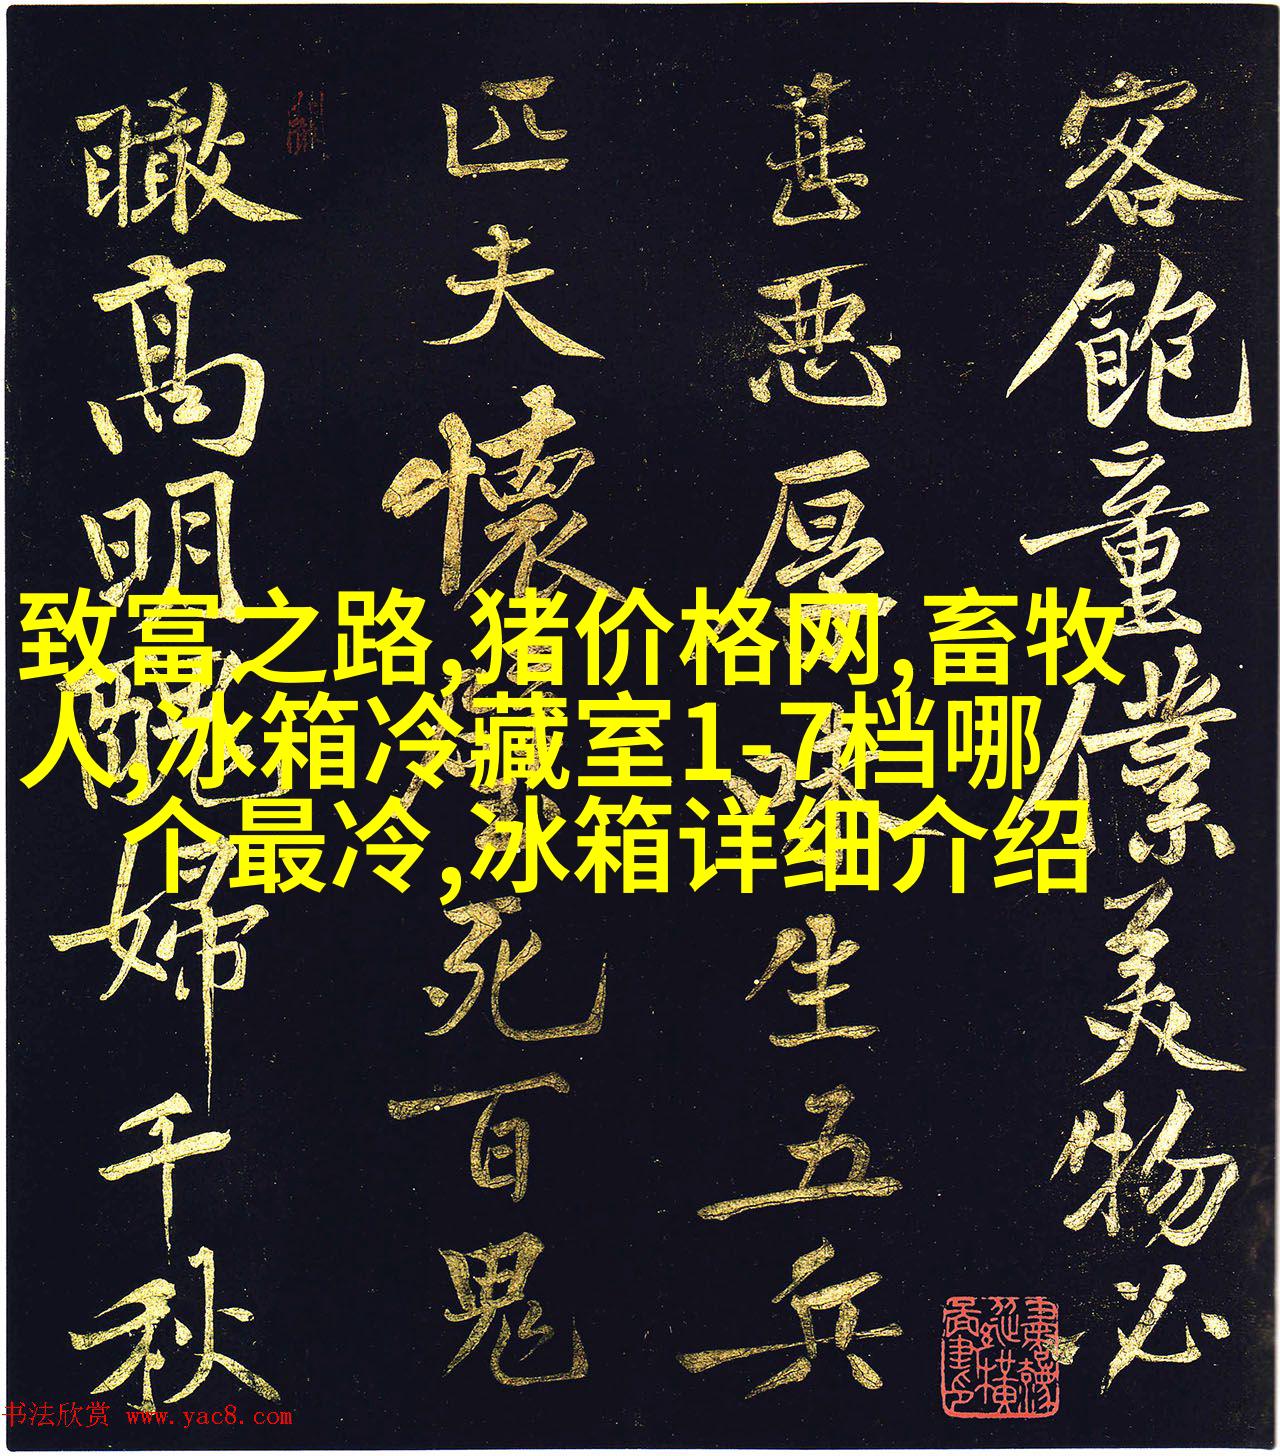 致富之路,猪价格网,畜牧
人,冰箱冷藏室1-7档哪
个最冷,冰箱详细介绍
客飽童僕美物必
甚惡厚生五兵
匹夫懷死百鬼
瞰高明醜婦千秋
书法欣赏 www.yac8.com